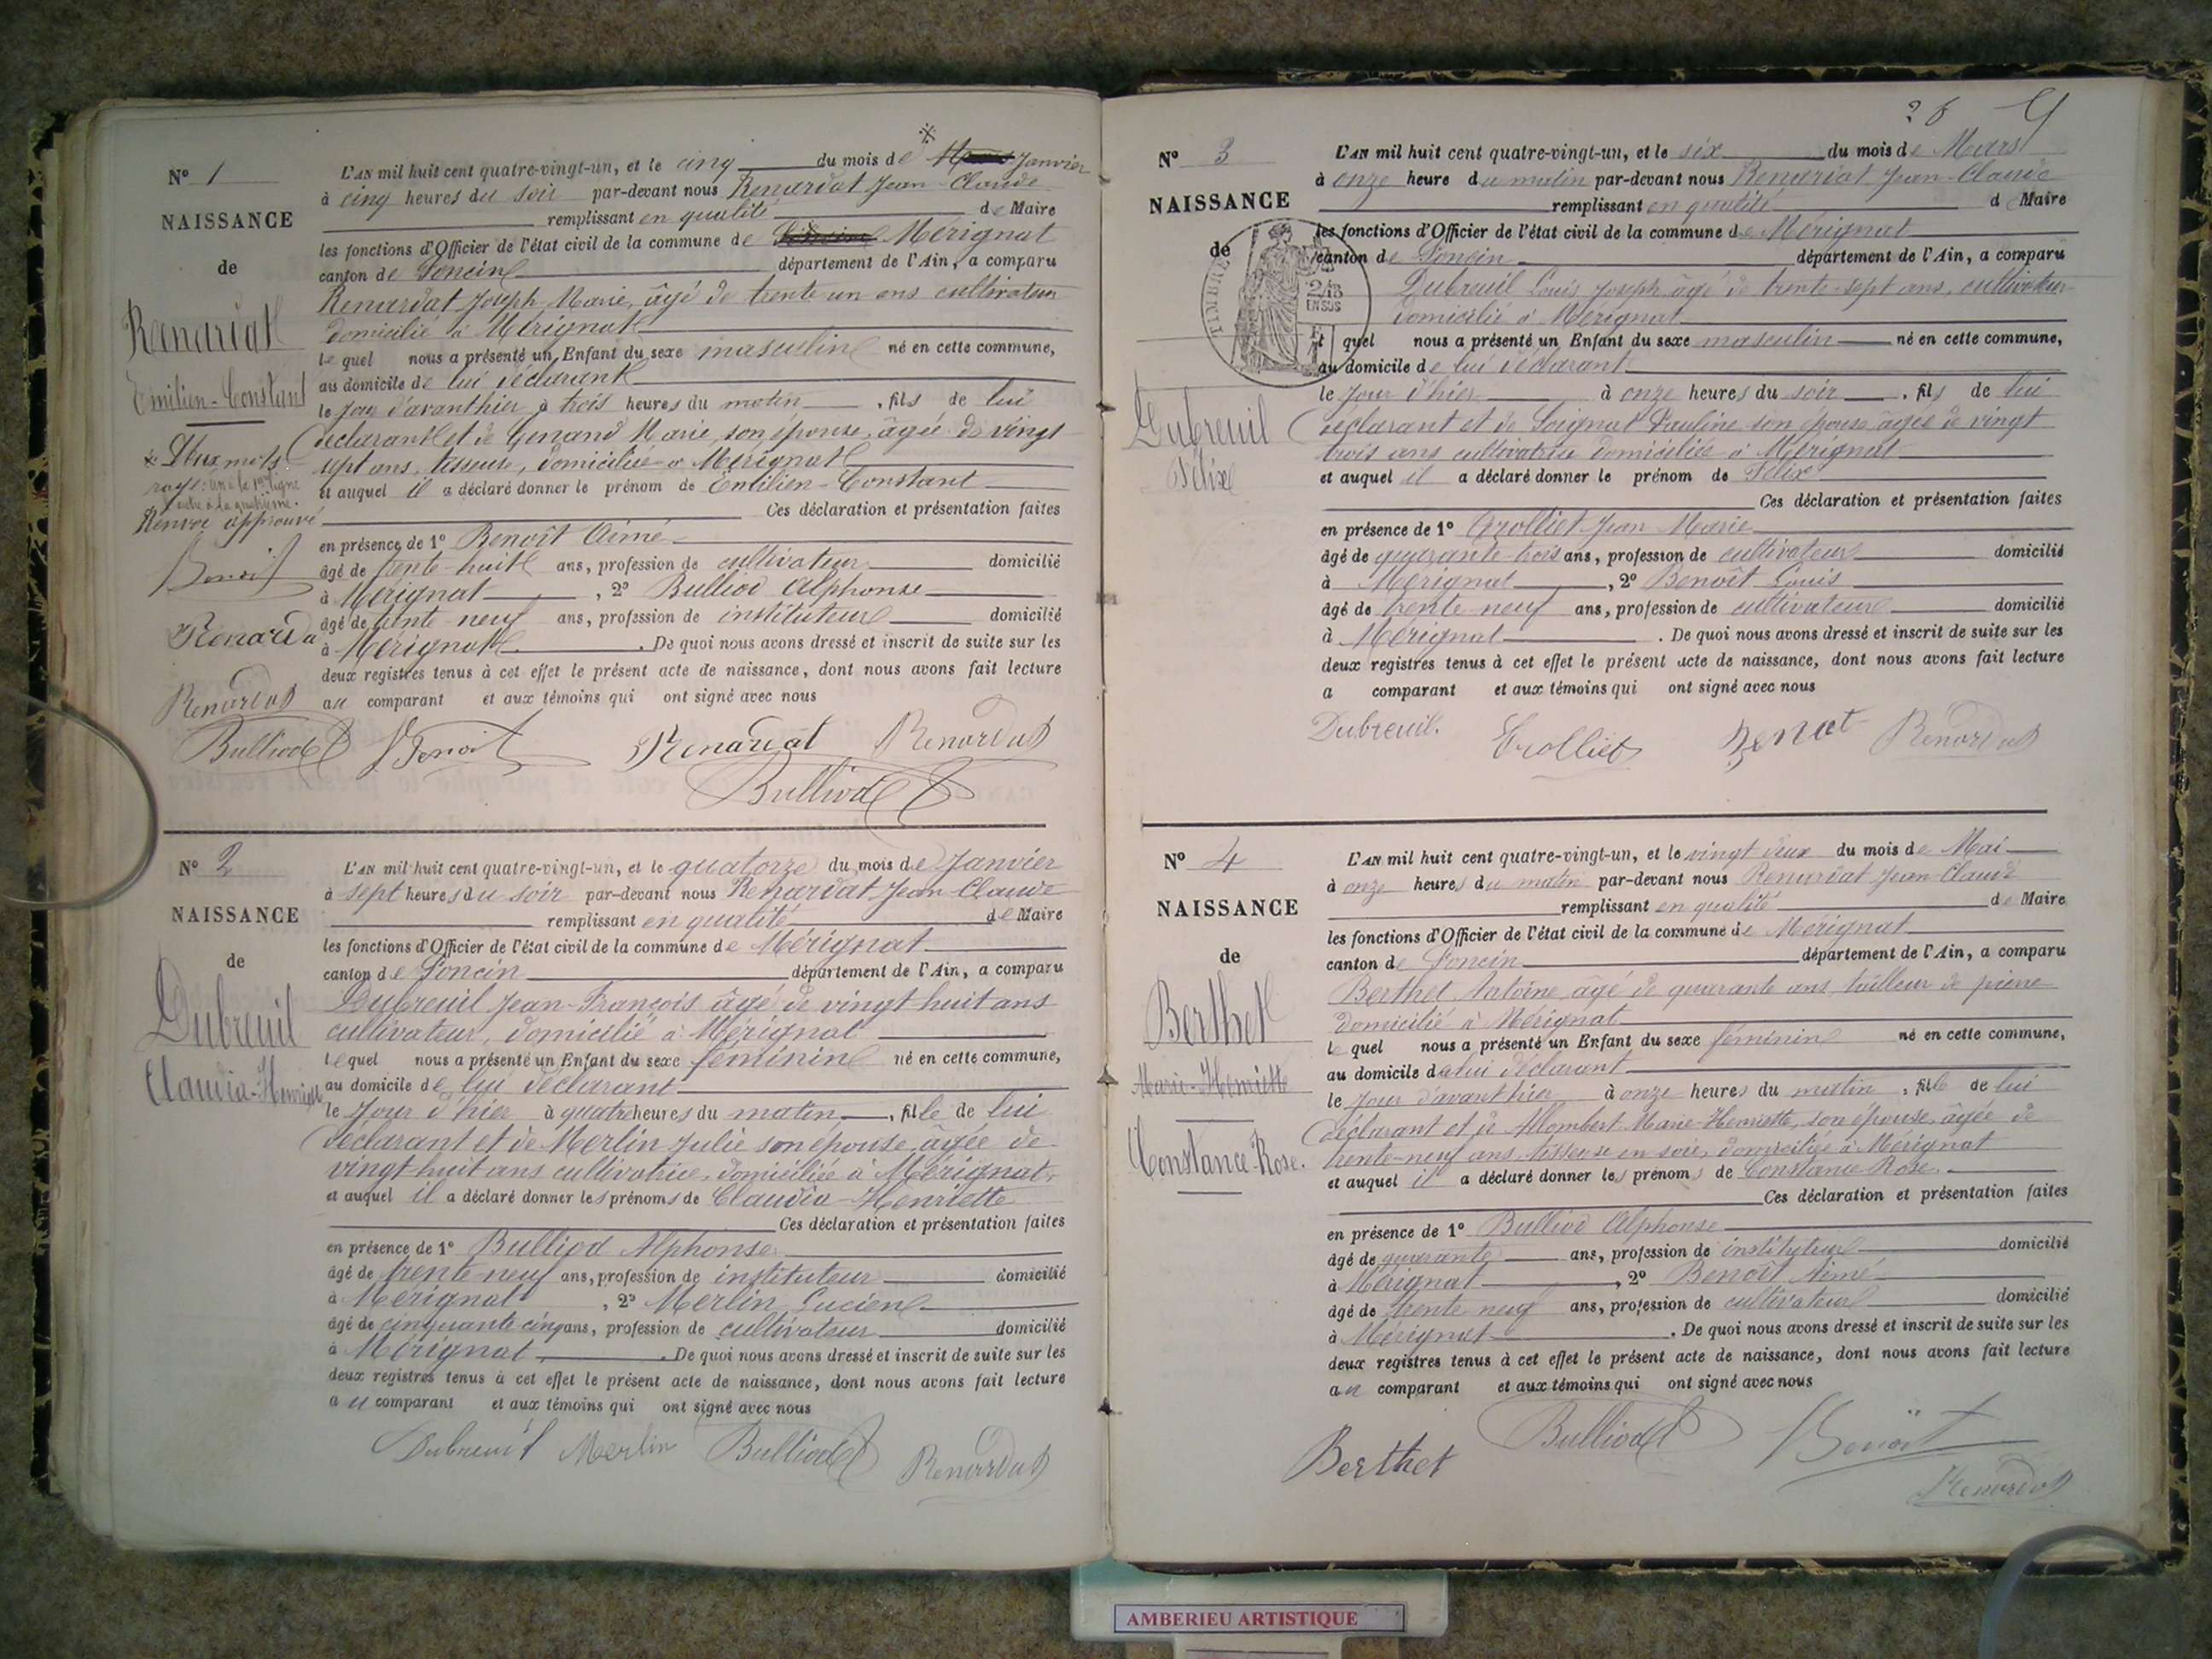 N° 1
NAISSANCE
de
Renardat
Emilien-Constant
※ Deux mots
rayés: un à la 1ère ligne
autre à la quatrième.
Renvoi approuvé
Benoit
Renarda
Renardat
Bulliod
※
L'AN mil huit cent quatre-vingt-un, et le cinq du mois de Mars Janvier
à cinq heures du soir par-devant nous Renardat Jean-Claude
remplissant en qualité de Maire
les fonctions d'Officier de l'état civil de la commune de Mérignat
canton de Poncin département de l'Ain, a comparu
Renardat Joseph Marie, âgé de trente un ans cultivateur
domicilié à Mérignat
lequel nous a présenté un Enfant du sexe masculin né en cette commune,
au domicile de lui déclarant
le jour d'avanthier à trois heures du matin, fils de lui
déclarant et de Genand Marie, son épouse, âgée de vingt
sept ans, tisseuse, domiciliée à Mérignat
et auquel il a déclaré donner le prénom de Emilien-Constant
Ces déclaration et présentation faites
en présence de 1° Benoît Aimé
âgé de trente-huit ans, profession de cultivateur domicilié
à Mérignat, 2° Bulliod Alphonse
âgé de trente neuf ans, profession de instituteur domicilié
à Mérignat. De quoi nous avons dressé et inscrit de suite sur les
deux registres tenus à cet effet le présent acte de naissance, dont nous avons fait lecture
au comparant et aux témoins qui ont signé avec nous
Benoit Renardat Renardat
Bulliod
N° 2
NAISSANCE
de
Dubreuil
Claudia-Henriette
L'AN mil huit cent quatre-vingt-un, et le quatorze du mois de Janvier
à sept heures du soir par-devant nous Renardat Jean-Claude
remplissant en qualité de Maire
les fonctions d'Officier de l'état civil de la commune de Mérignat
canton de Poncin département de l'Ain, a comparu
Dubreuil Jean-François âgé de vingt huit ans
cultivateur, domicilié à Mérignat
lequel nous a présenté un Enfant du sexe féminin né en cette commune,
au domicile de lui déclarant
le jour d'hier à quatre heures du matin, fille de lui
déclarant et de Merlin Julie son épouse, âgée de
vingt huit ans cultivatrice, domiciliée à Mérignat,
et auquel il a déclaré donner les prénoms de Claudia-Henriette
Ces déclaration et présentation faites
en présence de 1° Bulliod Alphonse
âgé de trente neuf ans, profession de instituteur domicilié
à Mérignat, 2° Merlin Lucien
âgé de cinquante cinq ans, profession de cultivateur domicilié
à Mérignat. De quoi nous avons dressé et inscrit de suite sur les
deux registres tenus à cet effet le présent acte de naissance, dont nous avons fait lecture
au comparant et aux témoins qui ont signé avec nous
Dubreuil Merlin Bulliod Renardat
N° 3
NAISSANCE
de
Dubreuil
Félix
L'AN mil huit cent quatre-vingt-un, et le six du mois de Mars
à onze heure du matin par-devant nous Renardat Jean-Claude
remplissant en qualité d Maire
les fonctions d'Officier de l'état civil de la commune de Mérignat
canton de Poncin département de l'Ain, a comparu
Dubreuil Louis Joseph âgé de trente-sept ans, cultivateur
domicilié à Mérignat
quel nous a présenté un Enfant du sexe masculin né en cette commune,
au domicile de lui déclarant
le jour d'hier à onze heures du soir, fils de lui
déclarant et de Soignat Pauline son épouse âgée de vingt
trois ans cultivatrice domiciliée à Mérignat
et auquel il a déclaré donner le prénom de Félix
Ces déclaration et présentation faites
en présence de 1° Grolliet Jean Marie
âgé de quarante-trois ans, profession de cultivateur domicilié
à Mérignat, 2° Benoît Louis
âgé de trente-neuf ans, profession de cultivateur domicilié
à Mérignat. De quoi nous avons dressé et inscrit de suite sur les
deux registres tenus à cet effet le présent acte de naissance, dont nous avons fait lecture
a comparant et aux témoins qui ont signé avec nous
Dubreuil. Grolliet Benoit Renardat
N° 4
NAISSANCE
de
Berthet
Marie-Henriette
Constance-Rose.
L'AN mil huit cent quatre-vingt-un, et le vingt deux du mois de Mai
à onze heures du matin par-devant nous Renardat Jean-Claude
remplissant en qualité de Maire
les fonctions d'Officier de l'état civil de la commune de Mérignat
canton de Poncin département de l'Ain, a comparu
Berthet Antoine âgé de quarante ans tailleur de pierre
domicilié à Mérignat
lequel nous a présenté un Enfant du sexe féminin né en cette commune,
au domicile de lui déclarant
le jour d'avanthier à onze heures du matin, fille de lui
déclarant et de Mombert Marie-Henriette, son épouse, âgée de
trente-neuf ans, tisseuse en soie, domiciliée à Mérignat
et auquel il a déclaré donner les prénoms de Constance Rose.
Ces déclaration et présentation faites
en présence de 1° Bulliod Alphonse
âgé de quarante ans, profession de instituteur domicilié
à Mérignat, 2° Benoît Aimé
âgé de trente neuf ans, profession de cultivateur domicilié
à Mérignat. De quoi nous avons dressé et inscrit de suite sur les
deux registres tenus à cet effet le présent acte de naissance, dont nous avons fait lecture
au comparant et aux témoins qui ont signé avec nous
Berthet Bulliod Benoit
Renardat
AMBERIEU ARTISTIQUE